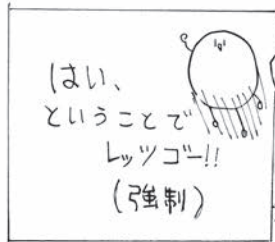 はい、
ということで
レッツゴー!!
(強制)